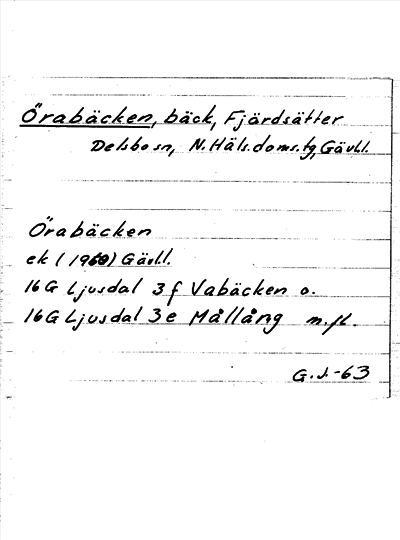 Örabäcken, bäck, Fjärdsätter
Delsbo sn, N.Häls.doms.tg, Gävhl.
Örabäcken
ek (1960) Gävhl.
16G Ljusdal 3f Vabäcken o.
16G Ljusdal 3e Mållång m.fl.
G.J.-63